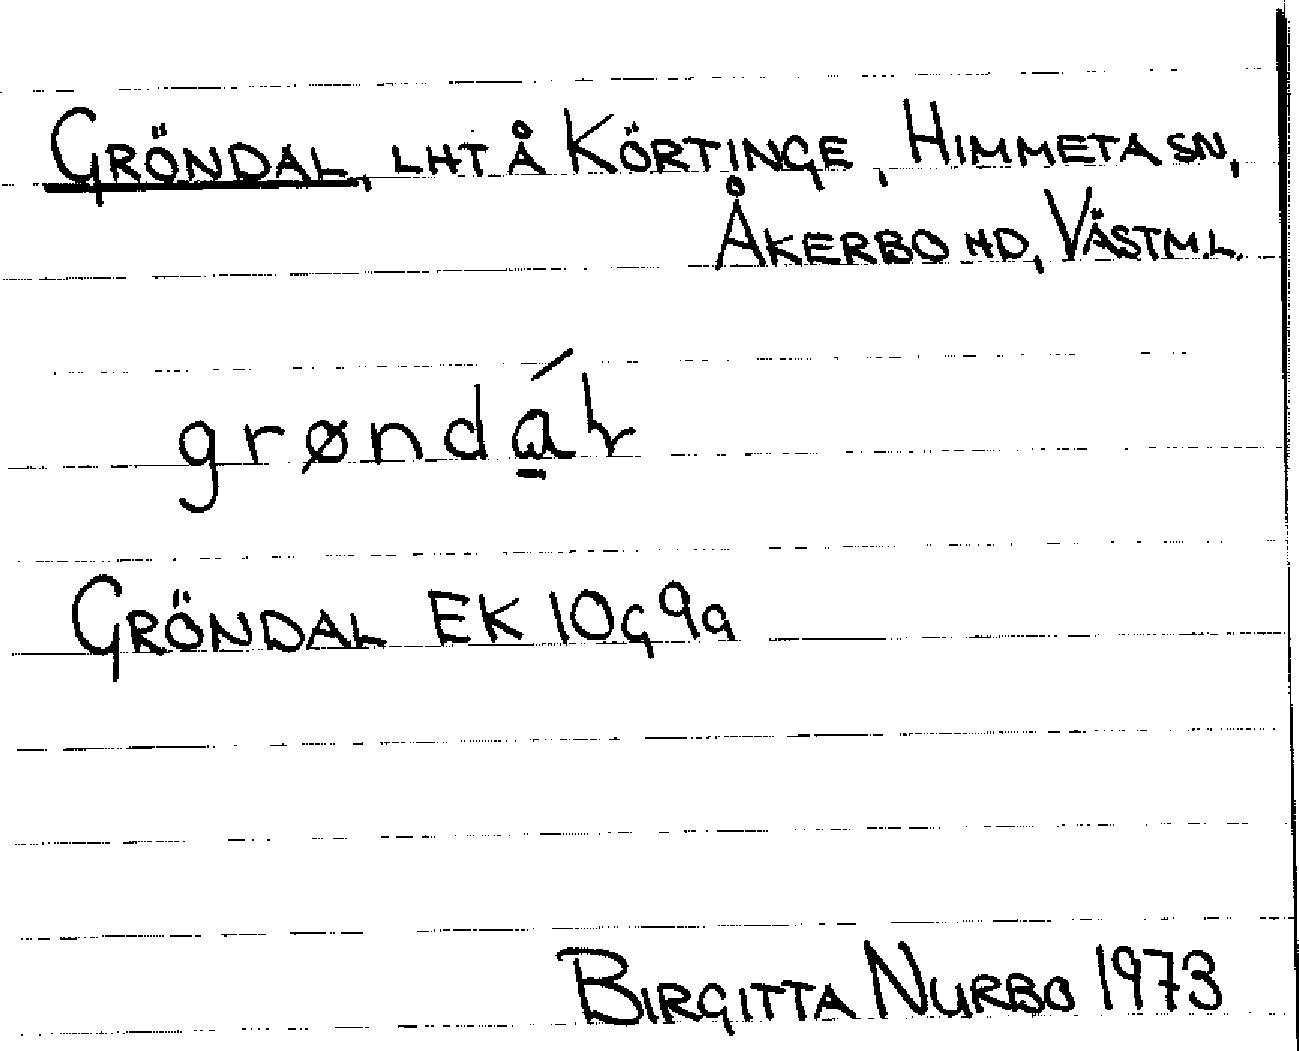 GRÖNDAL, LHT Å KÖRTINGE, HIMMETA SN,
ÅKERBO HD, VÄSTML.
grøndá̱ɫ
GRÖNDAL EK 10G9a
BIRGITTA NURBO 1973